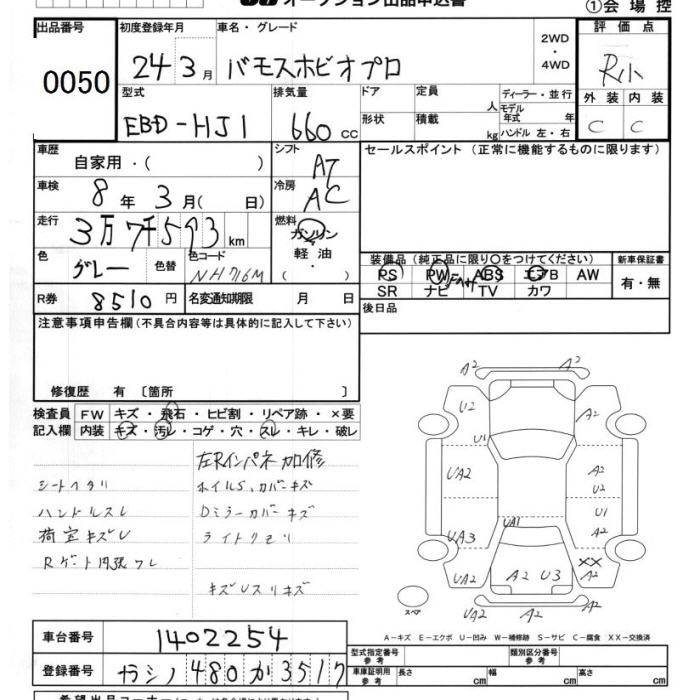 オークション出品申込書
①会場控
出品番号 初度登録年月 車名・グレード 2WD・4WD 評価点
0050 24年3月 バモスホビオプロ R小
外装 内装
C C
型式 排気量 ドア 定員 人 ディーラー・並行
EBD-HJ1 660cc 形状 積載 kg モデル年式 年
ハンドル 左・右
車歴 自家用・( ) シフト AT セールスポイント(正常に機能するものに限ります)
車検 8年3月( 日) 冷房 AC
走行 3万7千5百93km 燃料 ガソリン
軽油・( )
色 グレー 色替 色コード NH716M
装備品(純正品に限り〇をつけてください) 新車保証書
PS PW ABS エアB AW 有・無
SR ナビ TV カワ
R券 8510円 名変通知期限 月 日 後日品
注意事項申告欄(不具合内容等は具体的に記入して下さい)
修復歴 有〔箇所 〕
検査員 FW キズ・飛石・ヒビ割・リペア跡・×要
記入欄 内装 キズ・汚レ・コゲ・穴・スレ・キレ・破レ
左Rインパネ加修
シートヘタリ ホイルS、カバーキズ
ハンドルスレ Dミラーカバーキズ
荷室キズU ライトクモリ
Rゲート内張ワレ
キズUスリキズ
A2 A2
U2 A2
U1
UA2 A2
U2
U1
UA1
UA3 A2
XX
UA2 A2 U3 A2
スペア UA2 A2
A-キズ E-エクボ U-凹み W-補修跡 S-サビ C-腐食 XX-交換済
車台番号 1402254 型式指定番号 参考 類別区分番号 参考
登録番号 ナラシノ480か3517 車庫証明用 参考 長さ cm 幅 cm 高さ cm